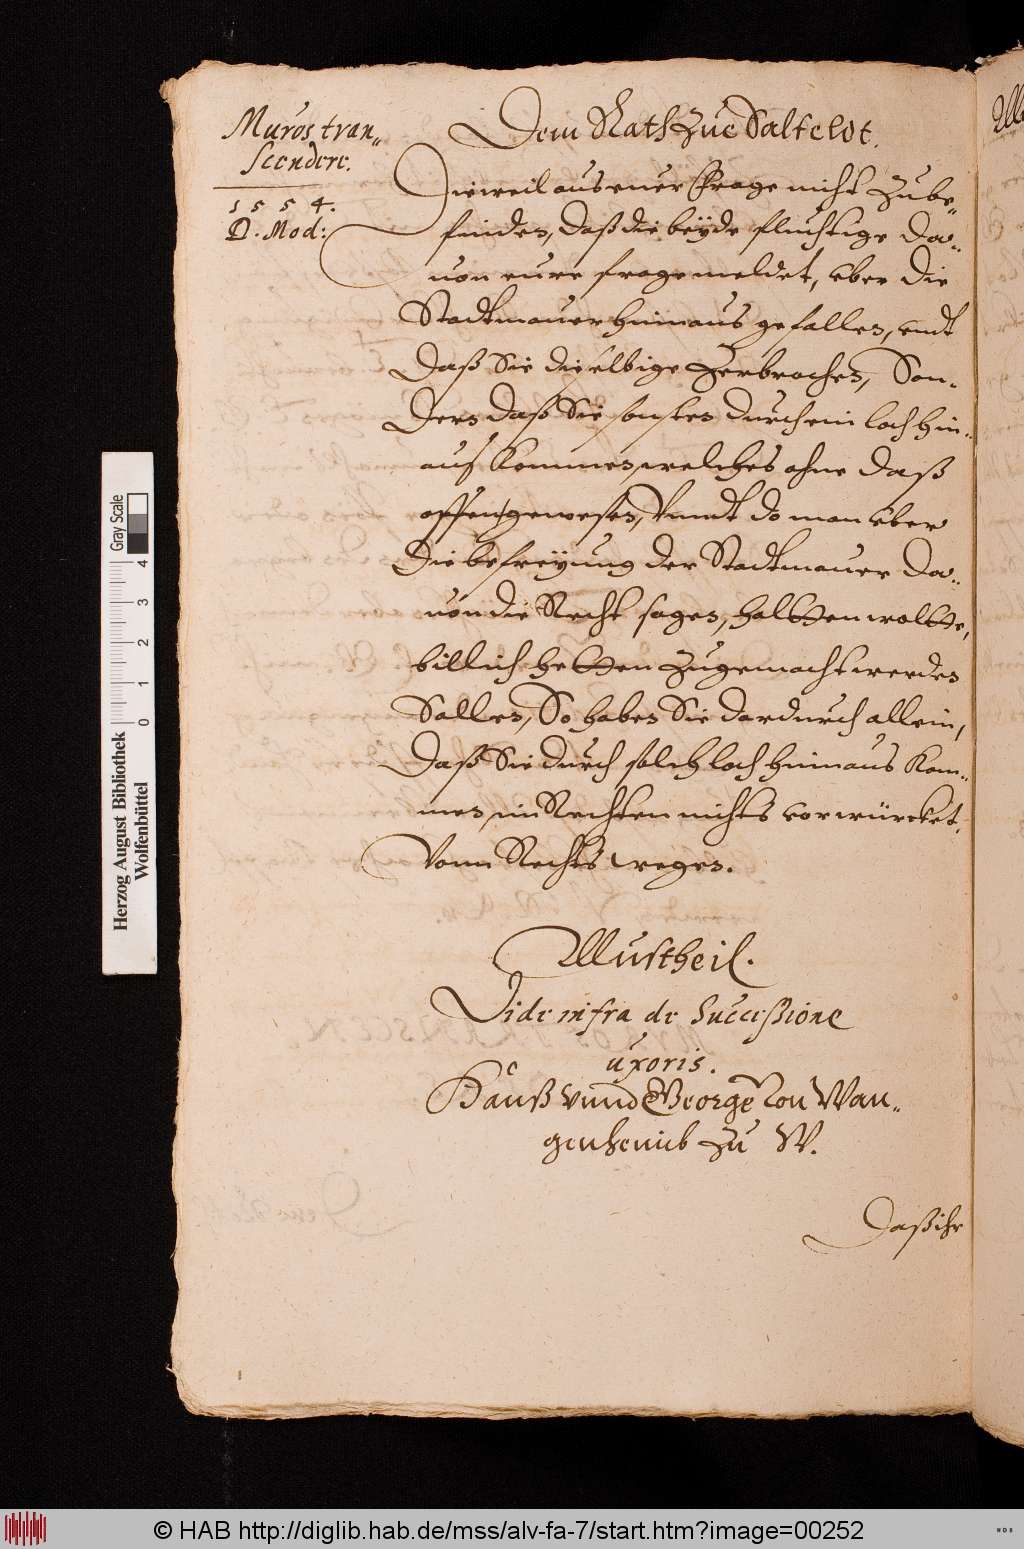 Muros tran„
scendere.
1554.
D. Mod:
Dem Rath Zue Salfeldt.
Dieweil aus euer Frage nicht Zu be„
finden, daß die beÿde fluchtige da„
uon eure frage meldet, vber die
Stadtmauer hinnaus gefallen, vndt
daß Sie dieselbige Zerbrochen, Son„
dern daß Sie sonsten durch ein loch hin„
aus kommen, welches ohne daß
offen gewesen, Vnndt do man vber
die befreÿung der Stadtmauer da„
uon die Recht sagen, haltten woltte,
billich hetten Zugemacht werden
Sollen, So haben Sie dardurch allein,
daß Sie durch solch loch hinnaus kom„
men, im Rechten nichts vorwürcket.
Vonn Rechts wegen.
Mustheil.
Vide infra de Succeßione
uxoris.
Hanß vnnd George von Wan„
genheimb Zu W.
Daß ihr
Herzog August Bibliothek
Wolfenbüttel
0 1 2 3 4
Gray Scale
© HAB http://diglib.hab.de/mss/alv-fa-7/start.htm?image=00252